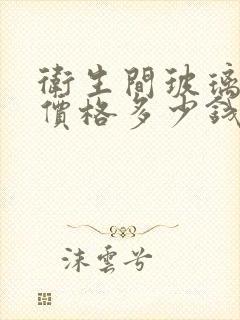 衛生間玻璃
價格多少錢
沫雲兮